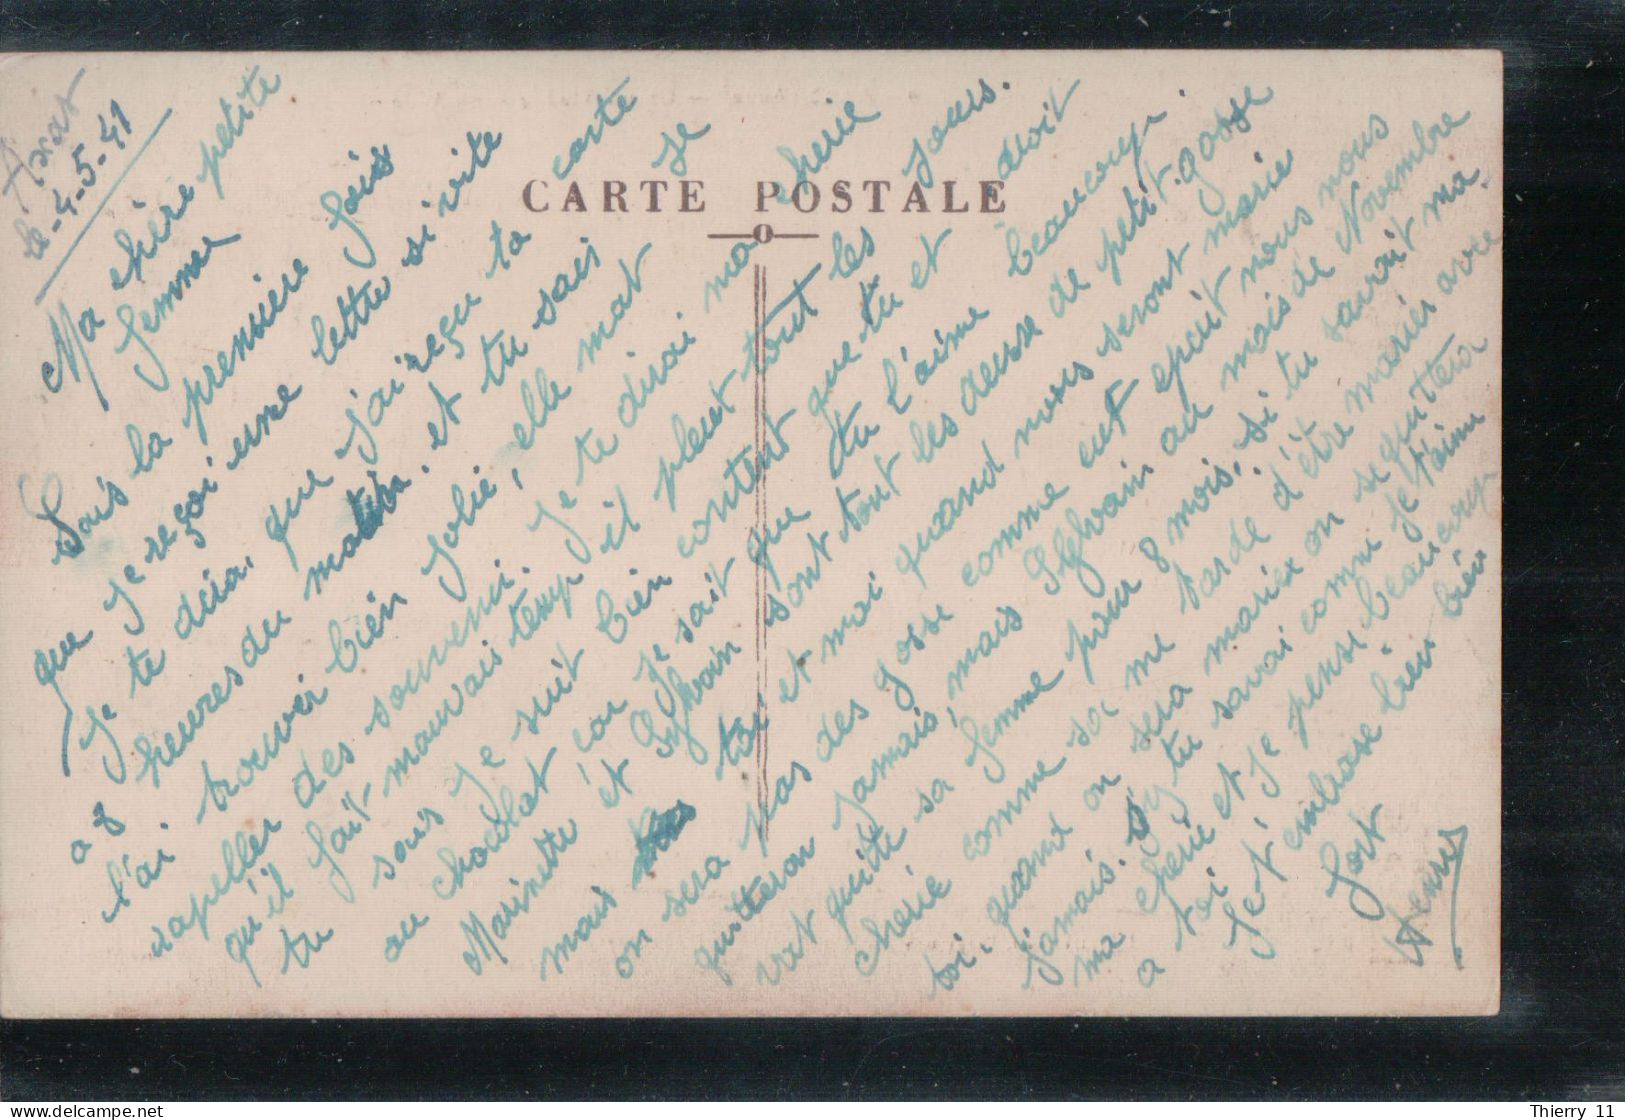 Axat
le-4-5-41
CARTE POSTALE
Ma chère petite
femme
Sais la première fois
que je reçoi une lettre si vite
Je te dirai que j'ai reçu ta carte
a 8 heures du matin. et tu sais je
l'ai trouver bien jolie, elle mat
rapeller des souvenir. Je te dirai ma cherie
qu'il fait mauvais temp il pleut tout les jours.
tu sais je suit bien content que tu et droit
au chocolat car je sait que tu l'aime beaucoup.
Marinette et Sylvain sont tout les deusse de petit gosse
mais toi et moi quand nous seront marie
on sera pas des gosse comme eut epuit nous nous
quitteron jamais, mais Sylvain au mois de Novembre
vat quitte sa femme pour 8 mois. si tu savait ma
cherie comme sa me tarde d'être marier avec
toi. quand on sera marier on se quittera
jamais. sy tu savai comme je t'aime
ma cherie et je pense beaucoup
a toi Je t'embrase bien bien
fort
Henri
Thierry 11